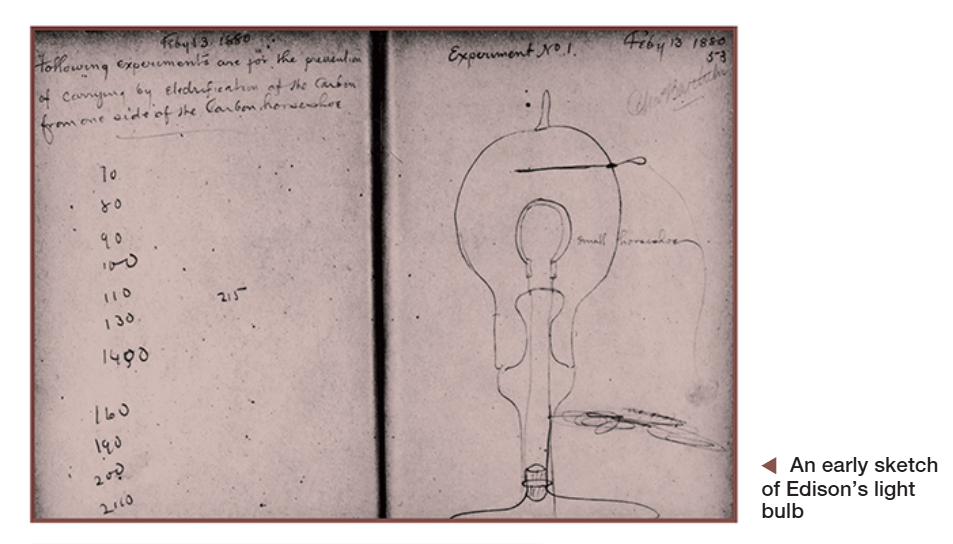 Feby 13 1880
Following experiments are for the prevention
of carrying by Electrification of the Carbon
from one side of the Carbon horseshoe
70
80
90
100
110
215
130
160
190
200
Experiment No. 1.
Feby 13 1880
53
small horseshoe
◀ An early sketch
of Edison's light
bulb